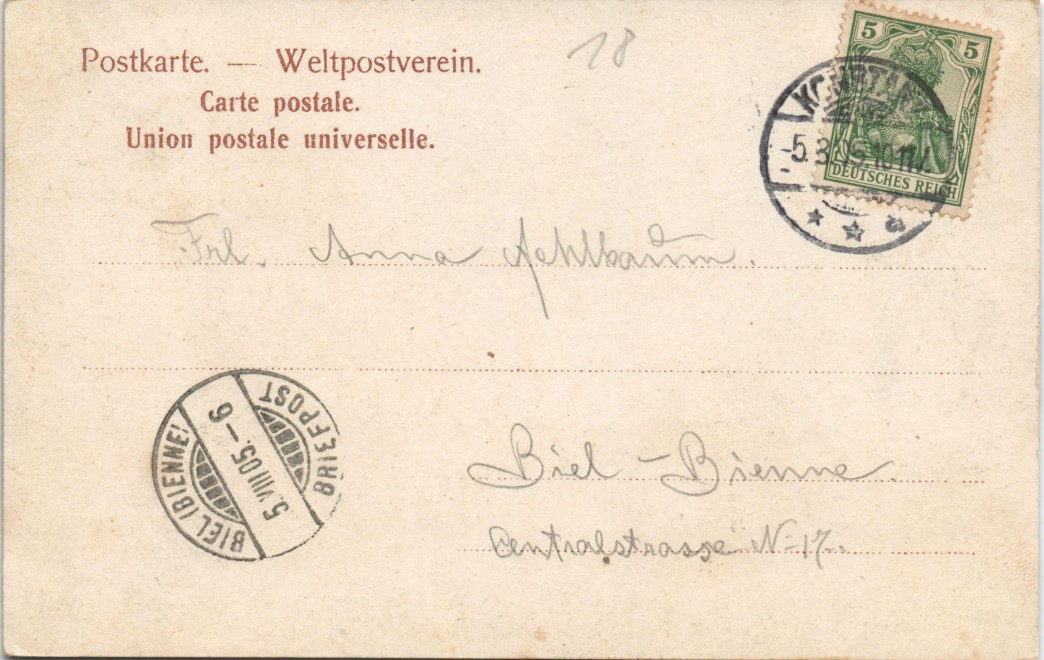 Postkarte. — Weltpostverein.
Carte postale.
Union postale universelle.
18
5 5
DEUTSCHES REICH
KONSTANZ
-5.8.05.10-11V.
* * a
Frl. Anna
Biel - Bienne.
Centralstrasse N-17.
BIEL (BIENNE)
5.VIII.05.-6
BRIEFPOST